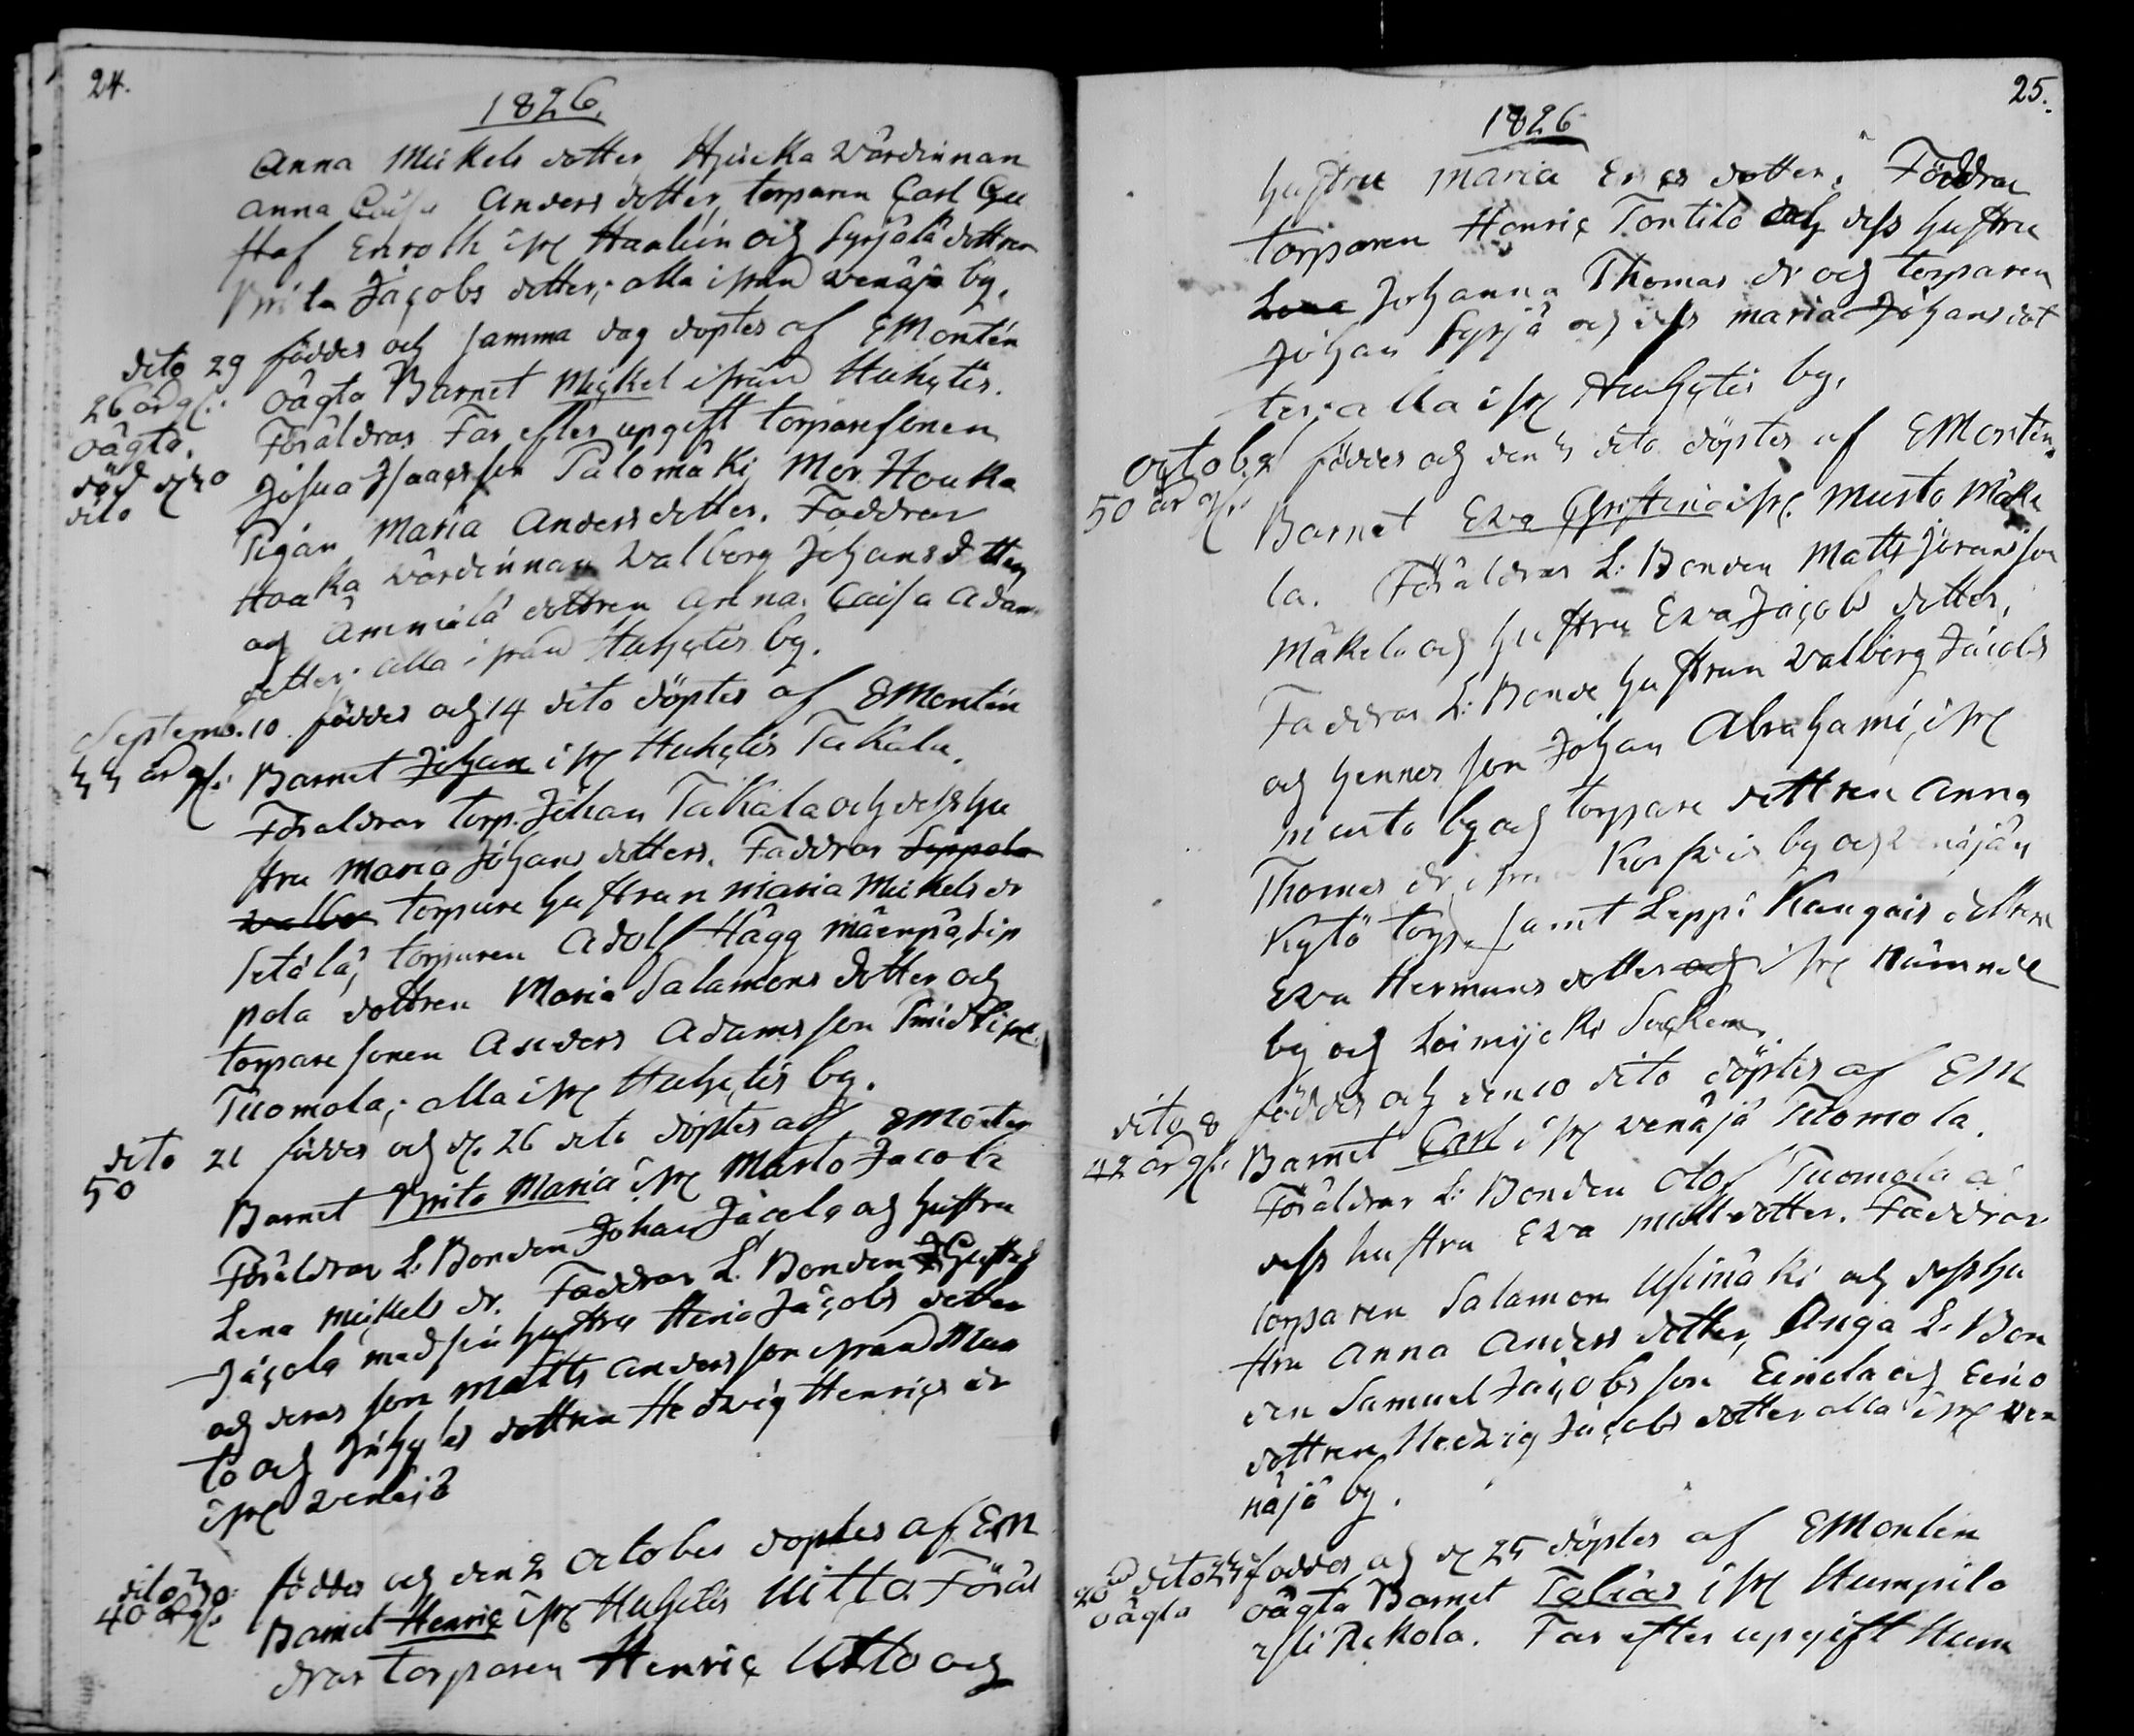 24.
1826.
Anna Mickels dotter, Hjucka Värdinnan
Anna Caisa Anders dotter, torparen Carl Gu
staf Enroth ifr Haalien och Syrjälä dottren
Brita Jacobs dotter; alla ifrån Venäjä by.
dito 29 föddes och samma dag döptes af EMontin
26 år gl: oägta Barnet Mickel ifrån Huhtis.
oägta. Föräldrar Far efter upgift torparesonen
död d 30 Josua Isaacsson Palomäki Mor Houka
dito
Pigan Maria Anders dotter. Faddrar
Houka Värdinnan Valborg Johans dotter
och Ammälä dottren Anna Caisa Adams
dotter; alla ifrån Huhtis by.
Septemb. 10. föddes och 14 dito döptes af EMontin
44 år gl: Barnet Johan ifr Huhtis Takala.
Föräldrar torp. Johan Takala och dess hu
stru Maria Johans dotter. Faddrar Seppala
Valbor torpare hustrun Maria Mickels dr
Setälä, torparen Adolf Hägg Mäenpä, Sip
pola dottren Maria Salamons dotter och
torpare sonen Anders Adamsson Smidt ifr
Tuomola; alla ifr Huhtis by.
dito 21 föddes och d. 26 dito döptes af EMonten
50
Barnet Brita Maria ifr Musto Jacola
Föräldrar L: Bonden Johan Jacola och hustru
Lena Mickels dr. Faddrar L. Bonden Gustaf
Jacola med sin hustru Jacobs dotter
och deras son Matts Andersson ifrån Mus
to och dottren Hedvig Henrics dr
ifr Venäjä
dito 30. föddes och den 2 October doptes af EM
40 år gl: Barnet Henric ifr Huhtis Uitto Föräl
drar torparen Henric Uitto och
25.
1826
hustru Maria Erics dotter. Faddrar
torparen Henric Tontilo och dess hustru
Lena Johanna Thomas dr och torparen
Johan Syrjä och dess Maria Johans dot
ter; alla ifr Huhtis by.
Octob. 2 föddes och den 4 dito döptes af EMontin.
50 år gl: Barnet Eva Christina ifr. Musto Mäke
la. Föräldrar L: Bonden Matts Göransson
Mäkelä och hustru Eva Jacobs dotter.
Faddrar L: Bonde hustrun Valborg Jacobs
och hennes son Johan Abrahami, ifr
Musto by och torpare dottren Anna
Thomas dr ifrån by och Venäjän
Kytö torp. samt Leppi Kangais dottren
Eva Hermans dotter och ifr
by och Loimijoki Socken.
dito 8 föddes och den 10 dito döptes af EM
42 år gl: Barnet Carl ifr Venäjä Tuomola.
Föräldrar L: Bonden Olof Tuomola o
dess hustru Eva Matts dotter. Faddrar
torparen Salamon Usimäki och dess hu
stru Anna Anders dotter, Unga L. Bon
den Samuel Jacobsson Eindla och Eino
dottren Hedvig Jacobs dotter alla ifr Ve
näjä by.
dito 24 föddes och d. 25 döptes af EMontin
20 år oägta oägta Barnet Tobias ifr Humpilo
Rekola. Far efter upgift Hum